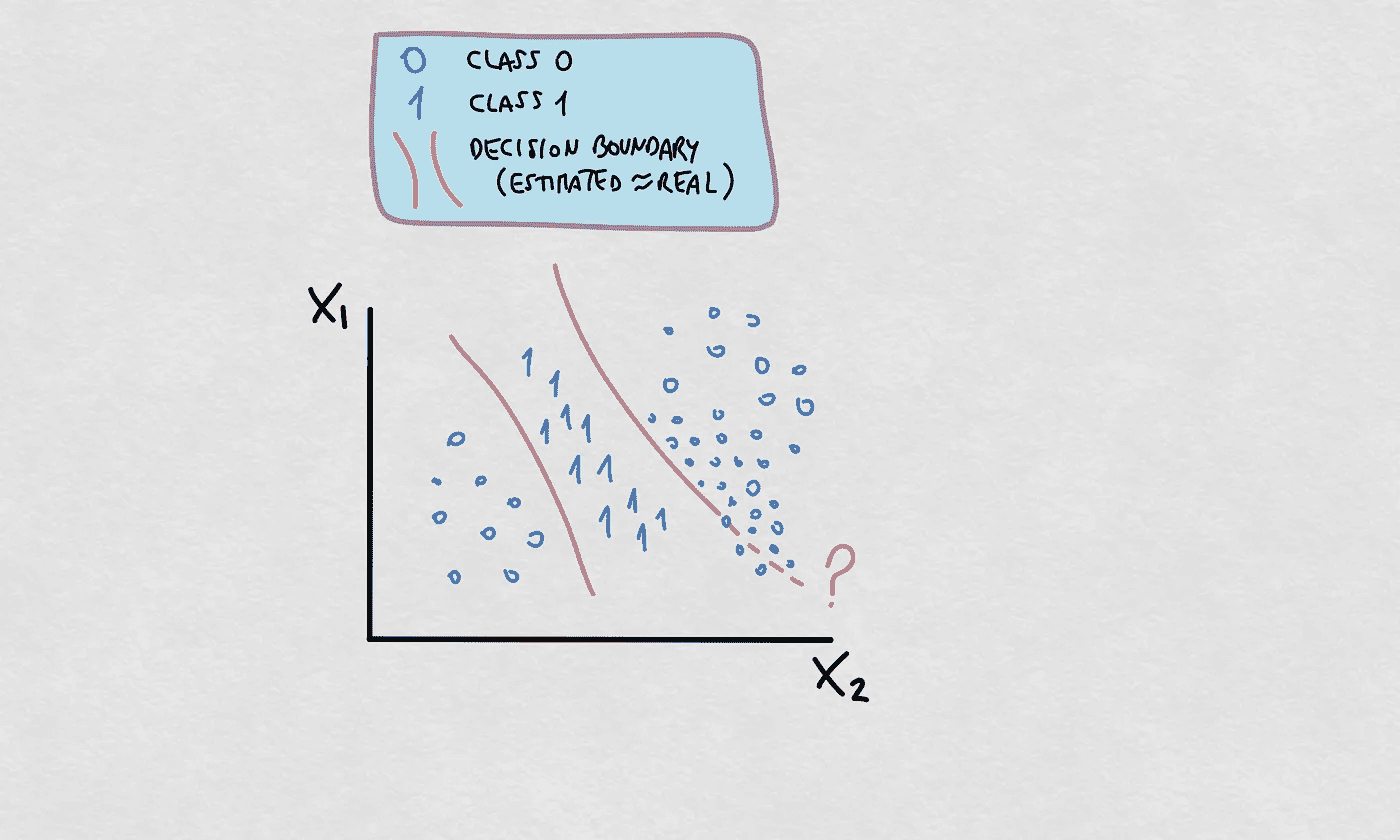 0 CLASS 0
1 CLASS 1
DECISION BOUNDARY
(ESTIMATED ≈ REAL)
X1
1
1
1
1
1
1 1
1
1 1
1
?
X2